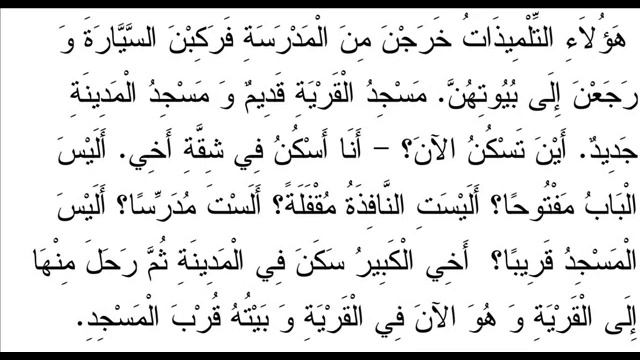 هَؤُلاَءِ التِّلْمِيذَاتُ خَرَجْنَ مِنَ الْمَدْرَسَةِ فَرَكِبْنَ السَّيَّارَةَ وَ
رَجَعْنَ إِلَى بُيُوتِهُنَّ. مَسْجِدُ الْقَرْيَةِ قَدِيمٌ وَ مَسْجِدُ الْمَدِينَةِ
جَدِيدٌ. أَيْنَ تَسْكُنُ الآنَ؟ – أَنَا أَسْكُنُ فِي شِقَّةِ أَخِي. أَلَيْسَ
الْبَابُ مَفْتُوحًا؟ أَلَيْسَتِ النَّافِذَةُ مُقْفَلَةً؟ أَلَسْتَ مُدَرِّسًا؟ أَلَيْسَ
الْمَسْجِدُ قَرِيبًا؟ أَخِي الْكَبِيرُ سَكَنَ فِي الْمَدِينَةِ ثُمَّ رَحَلَ مِنْهَا
إِلَى الْقَرْيَةِ وَ هُوَ الآنَ فِي الْقَرْيَةِ وَ بَيْتُهُ قُرْبَ الْمَسْجِدِ.